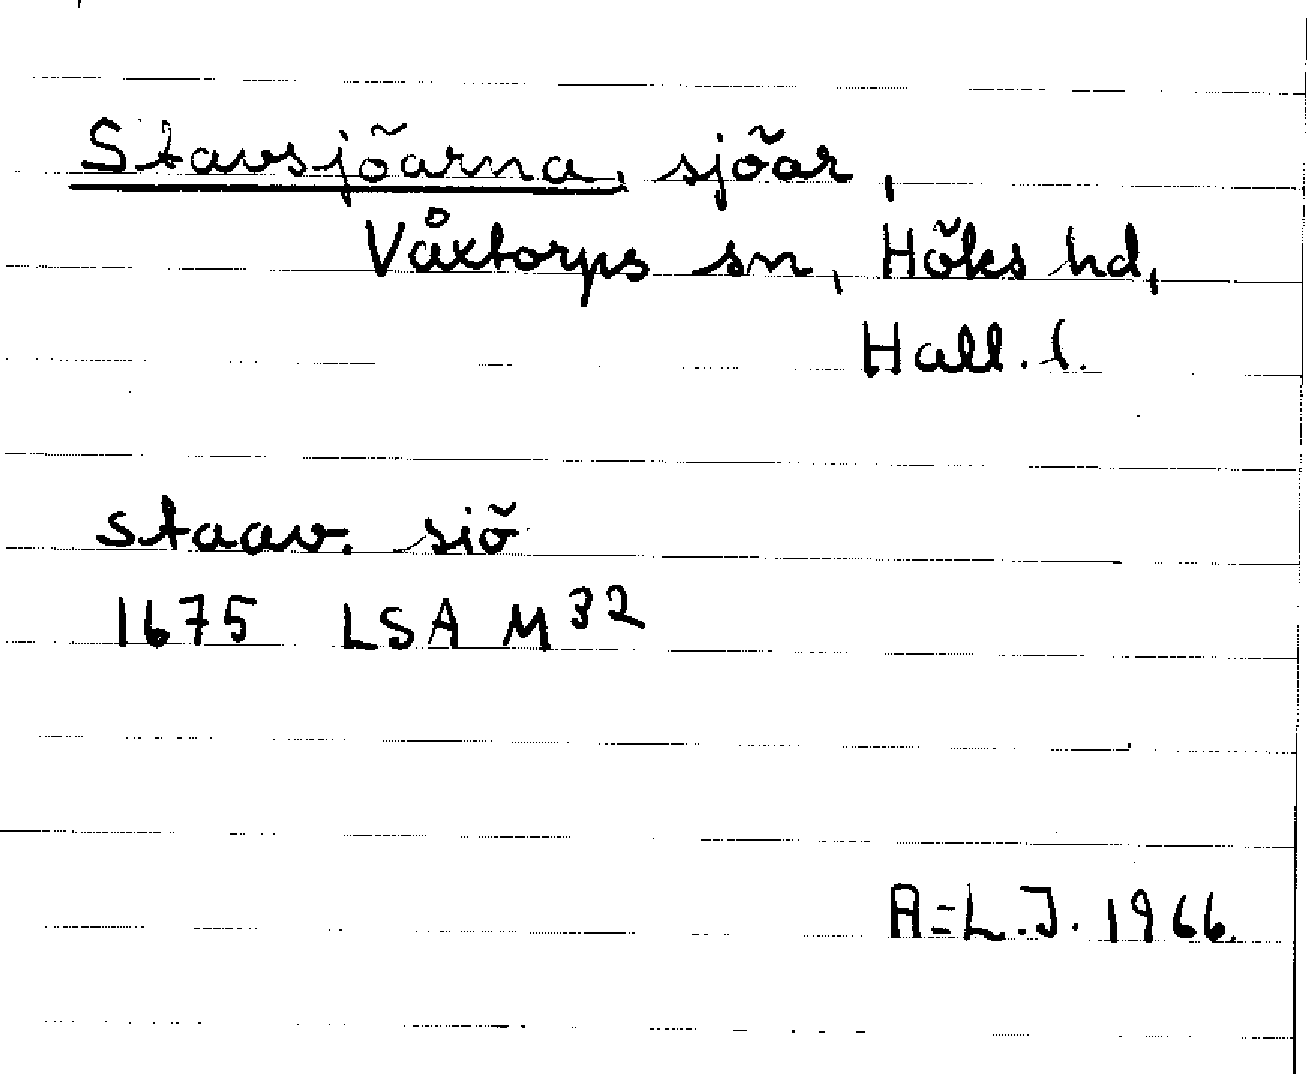 Stavsjöarna, sjöar,
Våxtorps sn, Höks hd,
Hall. l.
staav. siö
1675 LSA M32
A=L.J. 1966.